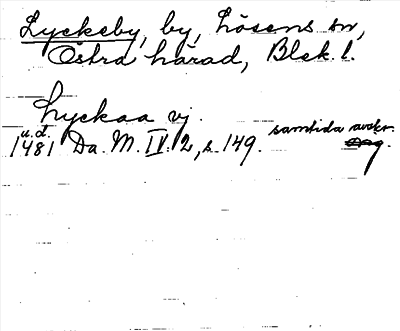 Lyckeby, by, Lösens sn,
Östra härad, Blek. l.
Lyckaa vj.
u.d. samtida avskr.
1481 Da. M. IV: 2, s. 149.